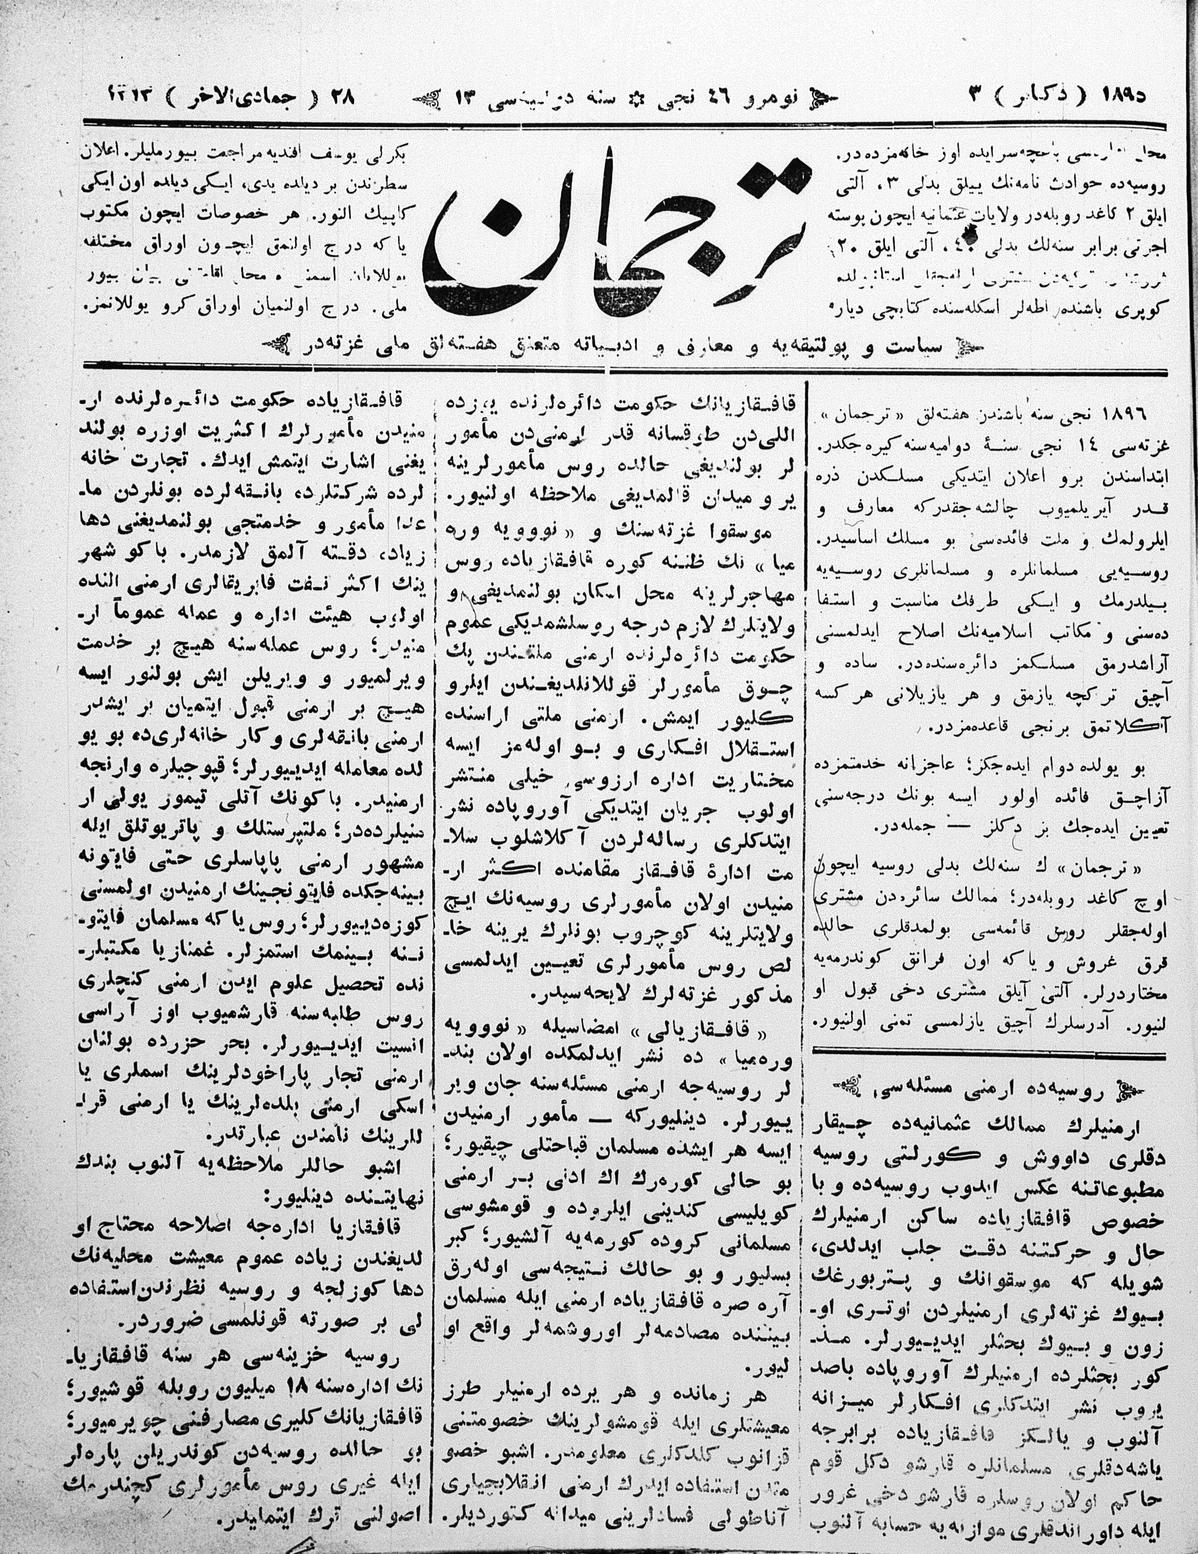 ١٨٩٥ ( دكابر ) ٣
نومرو ٤٦ نجی ✡ سنه دوامیه‌سی ١٣
٢٨ ( جمادی‌الاخر ) ١٣١٣
محل اداره‌سی باغچه‌سرایده اوز خانه‌مزده‌در.
روسیه‌ده حوادث نامه‌نك ییلق بدلی ٣، آلتی
ایلق ٢ كاغد روبله‌در ولایات عثمانیه ایچون پوسته
اجرتی برابر سنه‌لك بدلی ٤٠، آلتی ایلق ٢٠
كوپری باشنده اطه‌لر اسكله‌سنده كتابچی دیار
ترجمان
بكرلی یوسف افندیه مراجعت بیورملیلر. اعلان
سطرندن بر دیلده یدی، ایكی دیلده اون ایكی
كاپیك النور. هر خصوصات ایچون مكتوب
یا كه درج اولنمق ایچون اوراق مختلفه
یوللایان اسمنی و محل اقامتنی بیان بیور
ملی. درج اولنمیان اوراق كرو یوللانمز.
سیاست و پولتیقه‌یه و معارف و ادبیاته متعلق هفته‌لق ملی غزته‌در
١٨٩٦ نجی سنه باشندن هفته‌لق « ترجمان »
غزته‌سی ١٤ نجی سنهٔ دوامیه‌سنه كیره‌جكدر.
ابتداسندن برو اعلان ایتدیكی مسلكدن ذره
قدر آیریلمیوب چالشه‌جقدركه معارف و
ایلرولمك و ملت فائده‌سی بو مسلك اساسیدر.
روسیه‌یی مسلمانلره و مسلمانلری روسیه‌یه
بیلدرمك و ایكی طرفك مناسبت و استفا
ده‌سنی و مكاتب اسلامیه‌نك اصلاح ایدلمسنی
آراشدرمق مسلكمز دائره‌سنده‌در. ساده و
آچیق تركچه یازمق و هر یازیلانی هر كسه
آكلاتمق برنجی قاعده‌مزدر.
بو یولده دوام ایده‌جكز؛ عاجزانه خدمتمزده
آزاچق فائده اولور ایسه بونك درجه‌سنی
تعیین ایده‌جك بز دكلز — جمله‌در.
« ترجمان » ك سنه‌لك بدلی روسیه ایچون
اوچ كاغد روبله‌در؛ ممالك سائره‌دن مشتری
اوله‌جقلر روس قائمه‌سی بولمدقلری حالده
قرق غروش و یا كه اون فرانق كوندرمه‌یه
مختاردرلر. آلتی آیلق مشتری دخی قبول او
لنیور. آدرسلرك آچیق یازلمسی تمنی اولنیور.
روسیه‌ده ارمنی مسئله‌سی
ارمنیلرك ممالك عثمانیه‌ده چیقار
دقلری داووش و كورلتی روسیه
مطبوعاتنه عكس ایدوب روسیه‌ده و با
خصوص قافقازیاده ساكن ارمنیلرك
حال و حركتنه دقت جلب ایدلدی،
شویله كه موسقوانك و پتربورغك
بیوك غزته‌لری ارمنیلردن اوتری او
زون و بیوك بحثلر ایدیورلر. مذ
كور بحثلرده ارمنیلرك آوروپاده باصد
یروب نشر ایتدكلری افكارلر میزانه
آلنوب و یالكز قافقازیاده برابرجه
یاشه‌دقلری مسلمانلره قارشو دكل قوم
حاكم اولان روسلره قارشو دخی غرور
ایله داوراندقلری موازنه‌یه حسابه آلنوب
قافقازیانك حكومت دائره‌لرنده یوزده
اللی‌دن طوقسانه قدر ارمنی‌دن مأمور
لر بولندیغی حالده روس مأمورلرینه
یر و میدان قالمدیغی ملاحظه اولنیور.
موسقوا غزته‌سنك و « نوویه وره
میا » نك ظننه كوره قافقازیاده روس
مهاجرلرینه محل امكان بولنمدیغی و
ولایتلرك لازم درجه روسلشمدیكی عموم
حكومت دائره‌لرنده ارمنی ملتندن پك
چوق مأمورلر قوللانلدیغندن ایلرو
كلیور ایمش. ارمنی ملتی اراسنده
استقلال افكاری و بو اوله‌مز ایسه
مختاریت اداره ارزوسی خیلی منتشر
اولوب جریان ایتدیكی آوروپاده نشر
ایتدكلری رساله‌لردن آكلاشلوب سلا
مت ادارهٔ قافقاز مقامنده اكثر ار
منیدن اولان مأمورلری روسیه‌نك ایچ
ولایتلرینه كوچروب بونلرك یرینه خا
لص روس مأمورلری تعیین ایدلمسی
مذكور غزته‌لرك لایحه‌سیدر.
« قافقازیالی » امضاسیله « نوویه
وره‌میا » ده نشر ایدلمكده اولان بند
لر روسیه‌جه ارمنی مسئله‌سنه جان ویر
یورلر. دینلیوركه — مأمور ارمنیدن
ایسه هر ایشده مسلمان قباحتلی چیقیور؛
بو حالی كوره‌رك اك ادنی بر ارمنی
كویلیسی كندینی ایلروده و قومشوسی
مسلمانی كروده كورمه‌یه آلشیور؛ كبر
بسلیور و بو حالك نتیجه‌سی اوله‌رق
آره صره قافقازیاده ارمنی ایله مسلمان
بیننده مصادمه‌لر اوروشمه‌لر واقع او
لیور.
هر زمانده و هر یرده ارمنیلر طرز
معیشتلری ایله قومشولرینك خصومتنی
قزانوب كلدكلری معلومدر. اشبو خصو
متدن استفاده ایدرك ارمنی انقلابچیاری
آناطولی فسادلرینی میدانه كتوردیلر.
قافقازیاده حكومت دائره‌لرنده ار
منیدن مأمورلرك اكثریت اوزره بولند
یغنی اشارت ایتمش ایدك. تجارت خانه
لرده شركتلرده، بانقه‌لرده بونلردن ما
عدا مأمور و خدمتجی بولنمدیغنی دها
زیاد، دقته آلمق لازمدر. باكو شهر
ینك اكثر نفت فابریقالری ارمنی النده
اولوب هیئت اداره و عمله عموماً ار
منیدر؛ روس عمله‌سنه هیچ بر خدمت
ویرلمیور و ویریلن ایش بولنور ایسه
هیچ بر ارمنی قبول ایتمیان بر ایشدر
ارمنی بانقه‌لری و كار خانه‌لری‌ده بو یو
لده معامله ایدییورلر؛ قپوجیلره وارنجه
ارمنیدر. باكونك آتلی تیمور یولی ار
منیلرده‌در؛ ملتپرستلك و پاتریوتلق ایله
مشهور ارمنی پاپاسلری حتی فایتونه
بینه‌جكده فایتونجینك ارمنیدن اولمسنی
كوزه‌دییورلر؛ روس یا كه مسلمان فایتو
ننه بینمك استمزلر. غمنازیا مكتبلر
نده تحصیل علوم ایدن ارمنی كنجلری
روس طلبه‌سنه قارشمیوب اوز آراسی
انسیت ایدییورلر. بحر حزرده بولنان
ارمنی تجار پاراخودلرینك اسملری یا
اسكی ارمنی بلده‌لرینك یا ارمنی قرا
للرینك نامندن عبارتدر.
اشبو حاللر ملاحظه‌یه آلنوب بندك
نهایتنده دینلیور:
قافقازیا اداره‌جه اصلاحه محتاج او
لدیغندن زیاده عموم معیشت محلیه‌نك
دها كوزلجه و روسیه نظرندن استفاده
لی بر صورته قونلمسی ضروردر.
روسیه خزینه‌سی هر سنه قافقازیا
نك اداره‌سنه ١٨ میلیون روبله قوشیور؛
قافقازیانك كلیری مصارفنی چویرمیور؛
بو حالده روسیه‌دن كوندریلن پاره‌لر
ایله غیری روس مأمورلری كچندرمك
اصولنی ترك ایتمایدر.